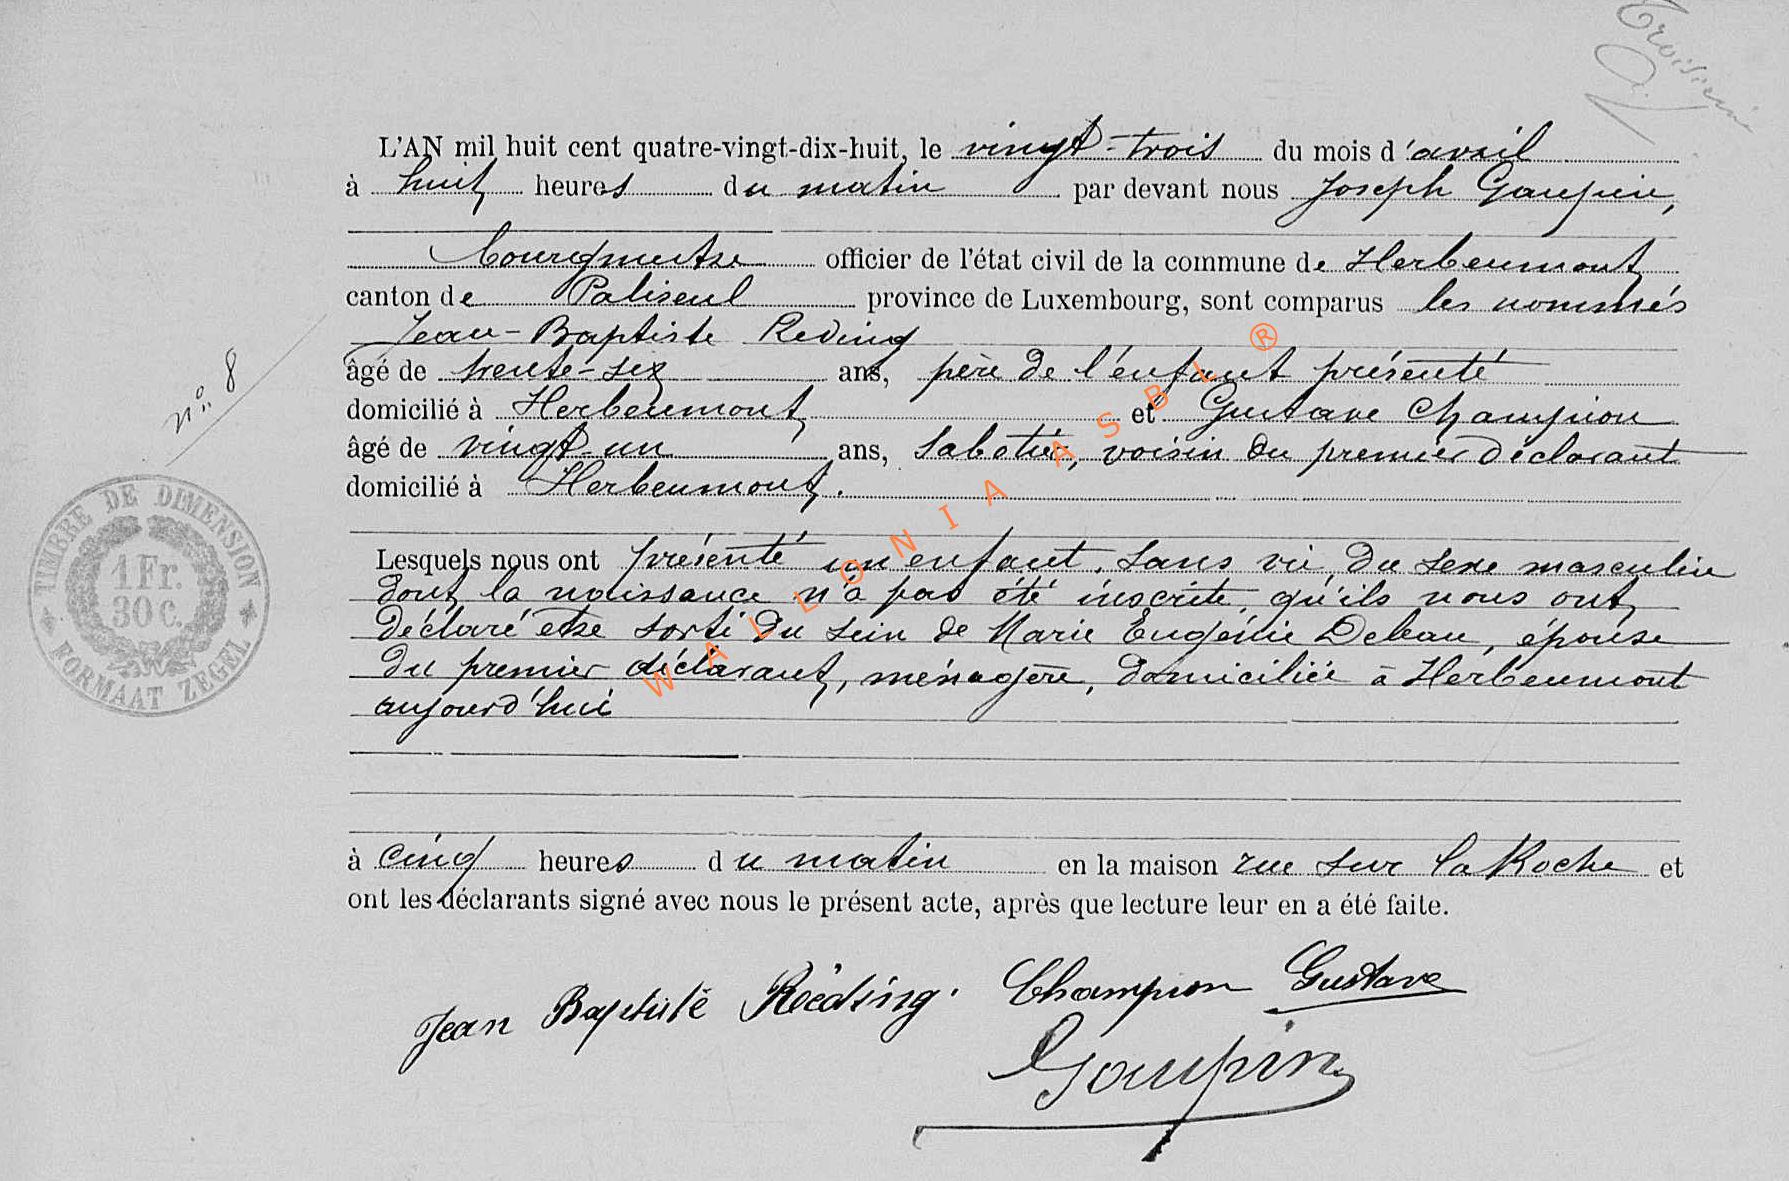 Troisième
L'AN mil huit cent quatre-vingt-dix-huit, le vingt-trois du mois d'avril
à huit heures du matin par devant nous Joseph Gaupin,
bourgmestre officier de l'état civil de la commune de Herbeumont
canton de Paliseul province de Luxembourg, sont comparus les nommés
Jean-Baptiste Reding
âgé de trente-six ans, père de l'enfant présenté
domicilié à Herbeumont et Gustave Champion
âgé de vingt-un ans, sabotier, voisin du premier déclarant
domicilié à Herbeumont.
n° 8
TIMBRE DE DIMENSION
1 Fr.
30 c.
FORMAAT ZEGEL
Lesquels nous ont présenté un enfant sans vie, du sexe masculin
dont la naissance n'a pas été inscrite, qu'ils nous ont
déclaré etre sorti du sein de Marie Eugénie Debeau, épouse
du premier déclarant, ménagère, domiciliée à Herbeumont
aujourd'hui
à cinq heures du matin en la maison rue sur la Roche et
ont les déclarants signé avec nous le présent acte, après que lecture leur en a été faite.
Jean Baptiste Rèeding. Champion Gustave
Gaupin
WALLONIA ASBL ®